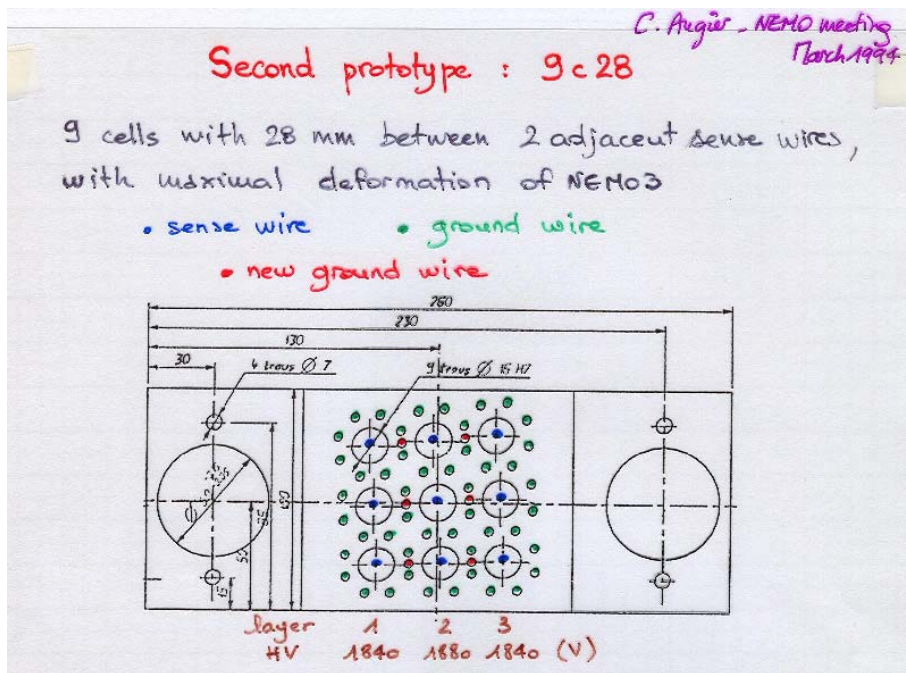 C. Augier - NEMO meeting
March 1994
Second prototype : 9c28
9 cells with 28 mm between 2 adjacent sense wires,
with maximal deformation of NEMO3
• sense wire • ground wire
• new ground wire
260
230
130
30
4 trous Ø 7
9 trous Ø 15 H7
100
85
55
15
layer 1 2 3
HV 1840 1880 1840 (V)